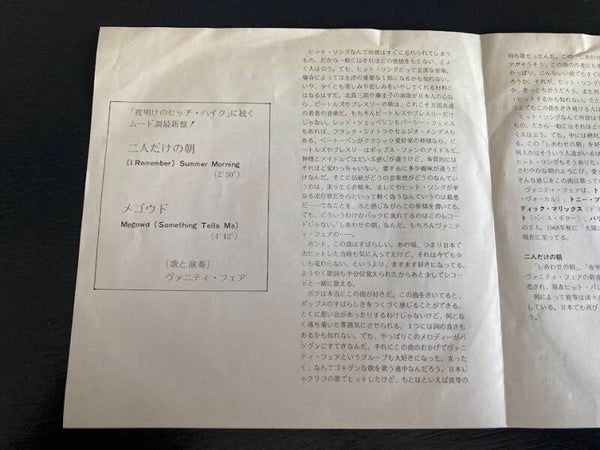 「夜明けのヒッチ・ハイク」に続く
ムード調最新盤！
二人だけの朝
(I Remember) Summer Morning
(2'50")
メゴウド
Megowd (Something Tells Me)
(4'12")
(歌と演奏)
ヴァニティ・フェア
ヒット・ソングなんて所詮はすぐに忘れられてしまう
もの。だから一般にはそれほどの価値をもたない、とよ
く人は云う。でも、ヒット・ソングだって立派な音楽。
場合によっては生活の重要な1部になるかも知れない。
いや、かくとも苦しみや悲しみをいやしてくれる材料に
はなるはずだ。北島三郎や藤圭子の演歌が日本人の心な
ら、ビートルズやプレスリーの歌は、これこそ万国共通
の若者の音楽だ。もちろんビートルズやプレスリーだけ
じゃない。レッド・ツェッペリンもブラインド・フェイス
もあれば、フランク・シナトラやセルジオ・メンデスも
ある。ベートーベンがクラシック愛好家の神様なら、ビ
ートルズやプレスリーはポップス・ファンのアイドルだ。
神様とアイドルではだいぶ感じが違うけど、本質的には
それほど変わっちゃいない。愛するに多少趣味が違うだ
けなんだ。そこに伝統がどうの音楽性がどうのなんてい
うのは、まったくお粗末。ましてやヒット・ソングが単
なる流行歌だからといって軽く扱うなんていうのは最悪
だ──てなことを、ふと感じながらこの原稿を書いてる。
でも、どういうわけかバックに流れてるのはこのレコー
ドじゃない。「しあわせの朝」なんだ。もちろんヴァニテ
ィ・フェアの──。
ホント、この曲はすばらしい。あの頃、つまり日本で
大ヒットした当時も気に入ってたけど、それは今でも少
しも変わらない。というより、ますます好きになってる。
ようやく歌詞も半分位覚えられたからあと少しでレコー
ドと一緒に歌える。
ボクは本当にこの曲が好きだ。この曲をきいてると、
ポップスのすばらしさをつくづく感じることができる。
とくに思い出があったりするわけじゃないけど、何とな
く落ち着いた雰囲気にさせられる。1つには詞の良さも
あるかも知れない。でも、やっぱりこのメロディーがバ
ツグンにすてきなんだ。それにこの曲のおかげでヴァニ
ティ・フェアというグループも大好きになった。まった
く、なんてゴキゲンな歌を歌う連中なんだろう。日本じ
ゃクリフの歌でヒットしたけど、もとはといえば彼等の
持ち歌だったんだ。この「しあわせ
やっぱり、こんないい歌でもすぐに
二人だけの朝
「しあわせの朝」、「夜明け
ヴァニティ・フェアの新盤